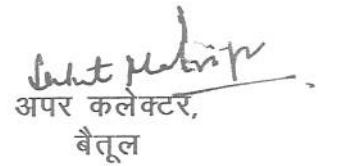 अपर कलेक्टर,
बैतूल